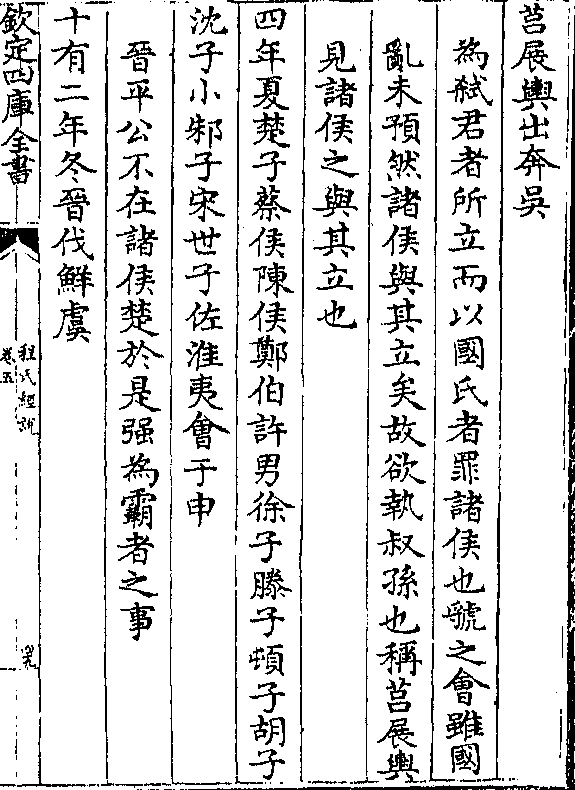 莒展輿出奔吳
為弑君者所立而以國氏者罪諸侯也虢之會雖國
亂未預然諸侯與其立矣故欲執叔孫也稱莒展輿
見諸侯之與其立也
四年夏楚子蔡侯陳侯鄭伯許男徐子滕子頓子胡子
沈子小邾子宋世子佐淮夷會于申
晉平公不在諸侯楚於是强為霸者之事
十有二年冬晉伐鮮虞
欽定四庫全書
程氏經説
卷五